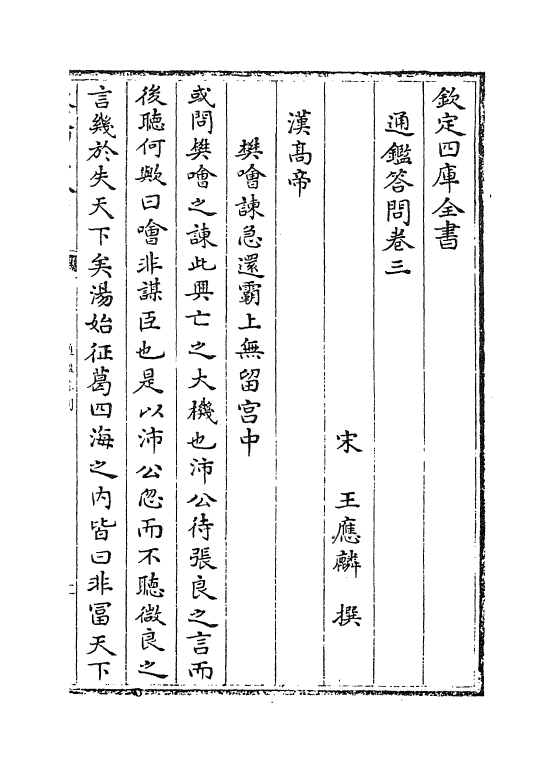 欽定四庫全書
通鑑答問卷三
宋　王應麟　撰
漢髙帝
樊噲諫急還霸上無留宫中
或問樊噲之諫此興亡之大機也沛公待張良之言而
後聽何歟曰噲非謀臣也是以沛公忽而不聽微良之
言幾於失天下矣湯始征葛四海之内皆曰非富天下